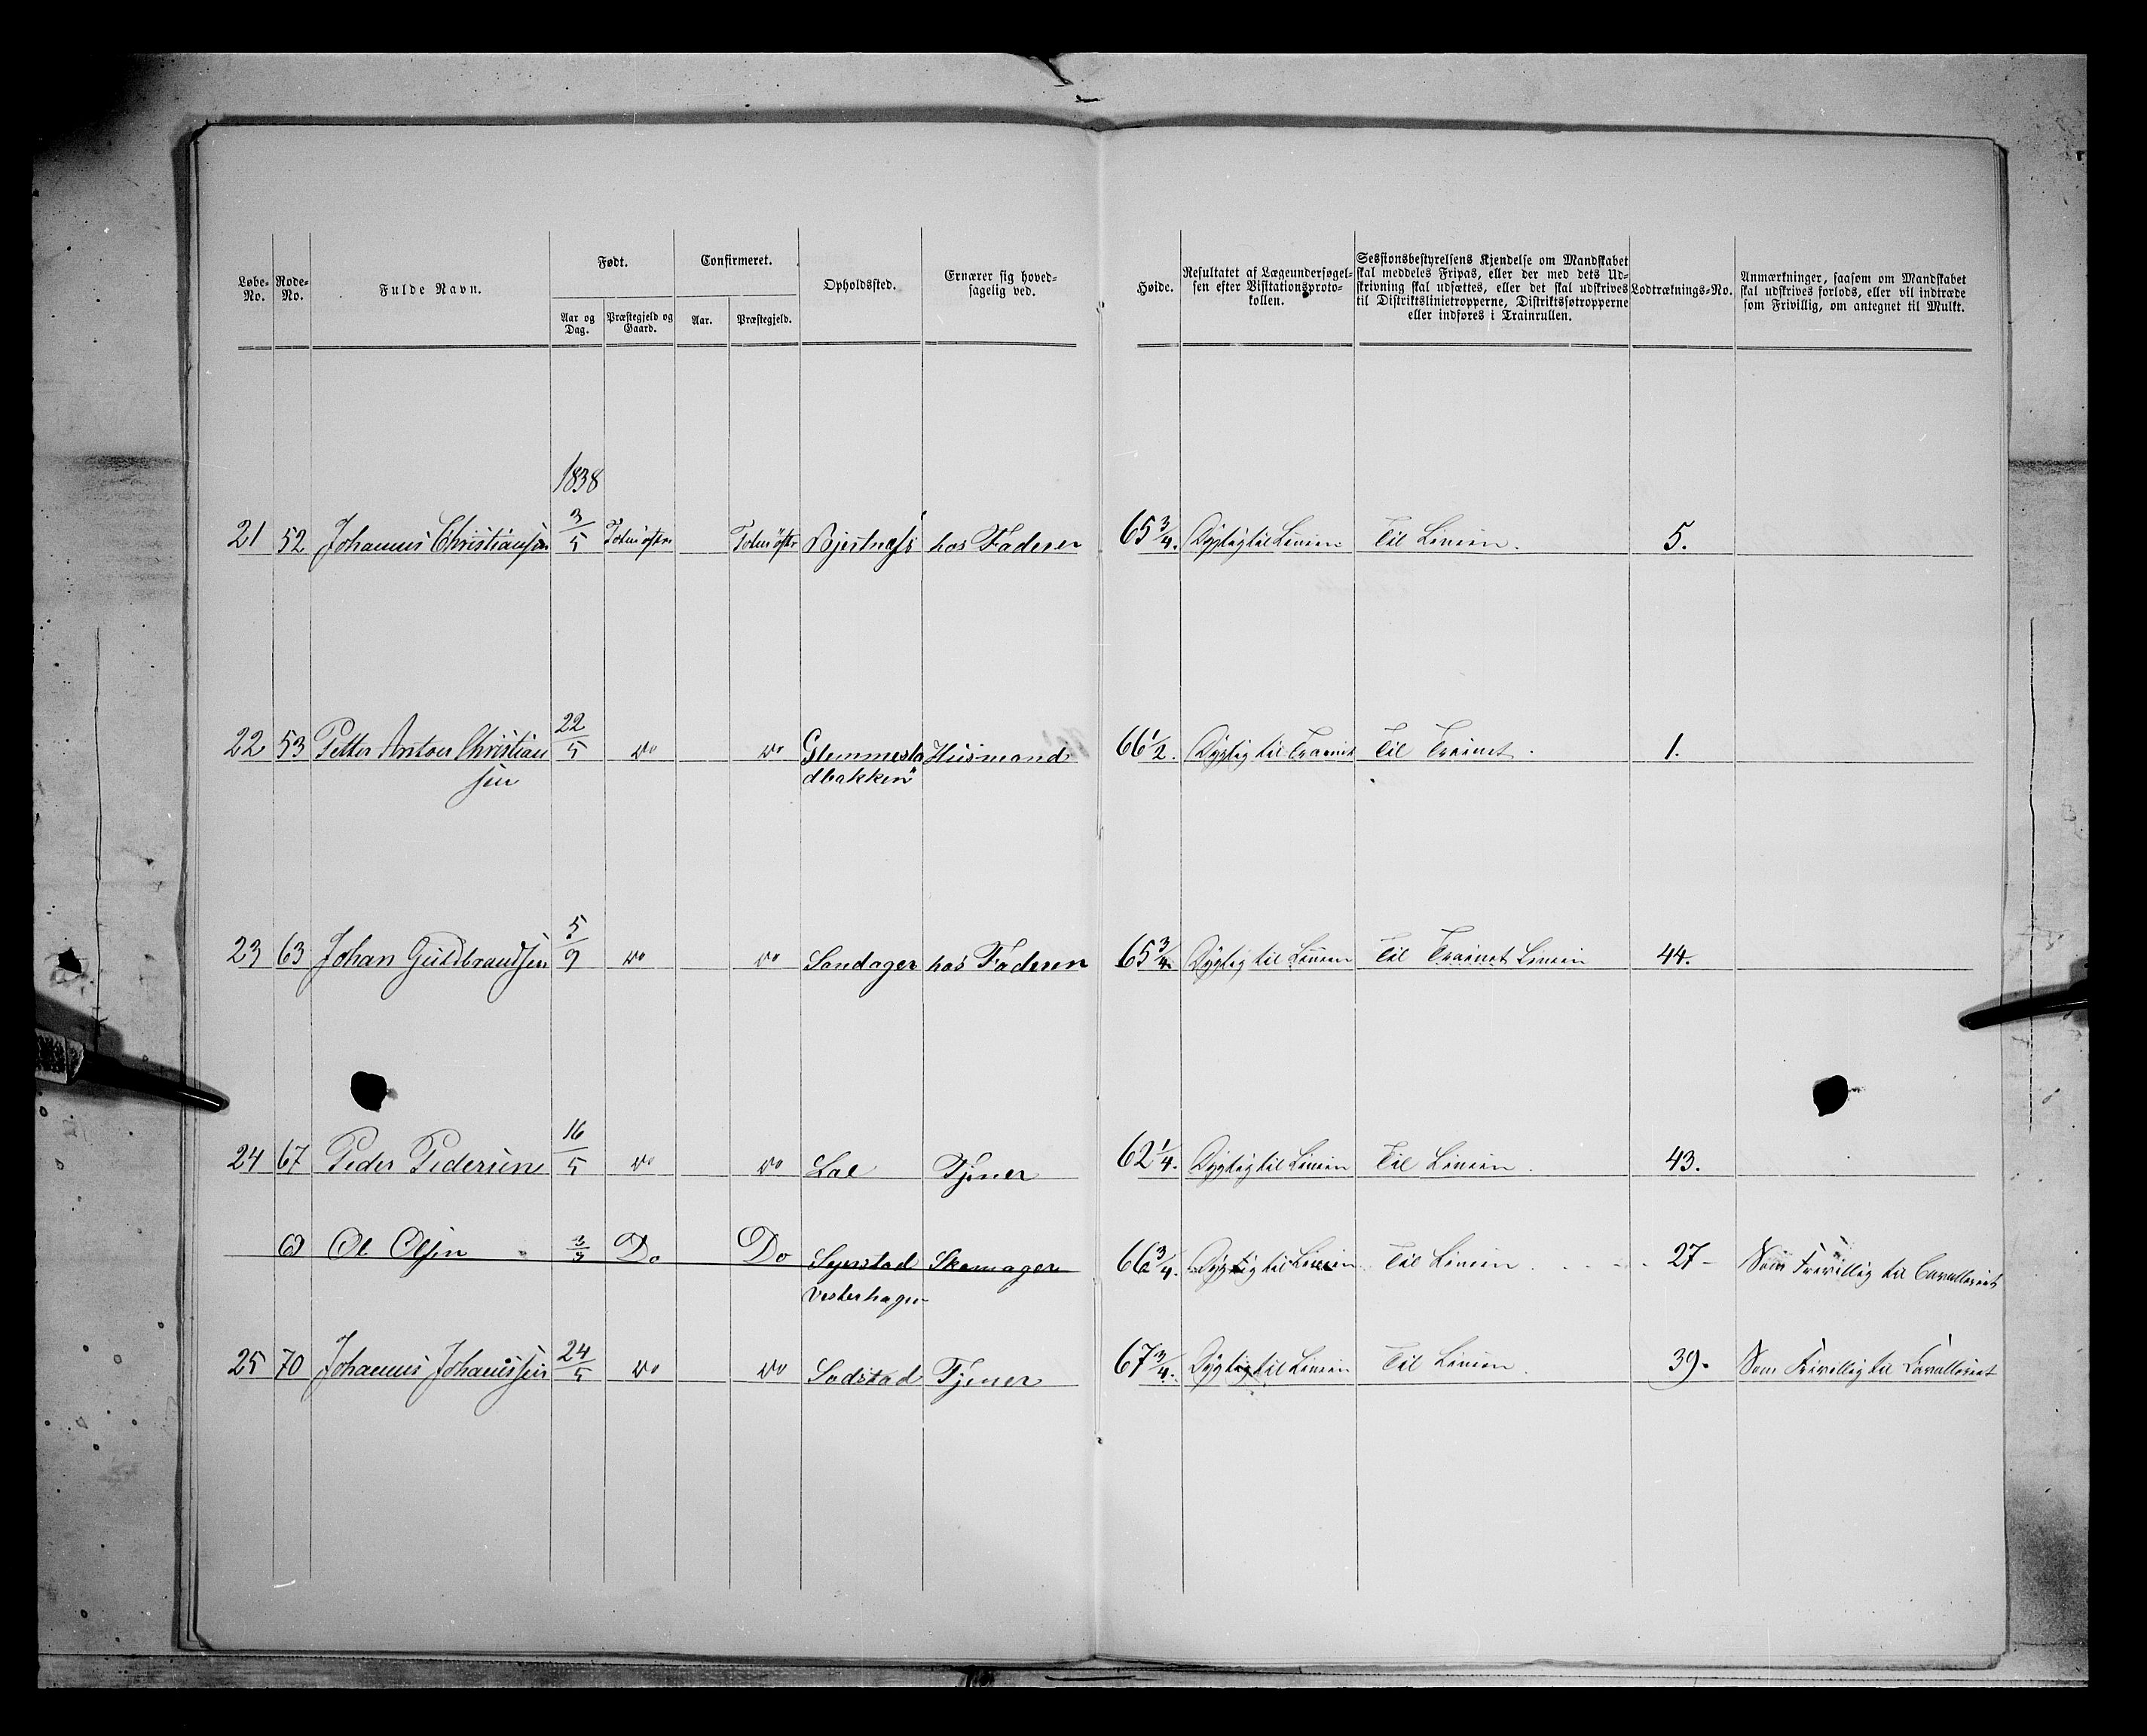 Løbe-No. Rode-No. Fulde Navn. Født. Confirmeret. Opholdssted. Ernærer sig hoved-
sagelig ved.
Aar og Dag. Præstegjeld og Gaard. Aar. Præstegjeld.
Høide. Resultatet af Lægeundersøgel-
sen efter Visitationsproto-
kollen.
Sessionsbestyrelsens Kjendelse om Mandskabet
skal meddeles Fripas, eller der med dets Ud-
skrivning skal udsættes, eller det skal udskrives
til Distriktslinietropperne, Distriktsfotropperne
eller indføres i Trainrullen.
Lodtræknings-No.
Anmærkninger, saasom om Mandskabet
skal udskrives forlods, eller vil indtræde
som Frivillig, om antegnet til Mulkt.
1838
21 52 Johannes Christiansen 3/5 Toten østre Toten østr Bjestness hos Faderen 65 3/4. Dygtig til Linien Til Linien. 5.
22 53 Petter Anton Christian 22/5 do do Glemmesta Husmand 66 1/2. Dygtig til Trainet Til Trainet. 1.
sen dbakken"
23 63 Johan Guldbrandsen 5/9 do do Sandager hos Faderen 65 3/4. Dygtig til Linien Til Trainet Linien 44.
24 67 Peder Pedersen 16/5 do do Lae Tjener 62 1/4. Dygtig til Linien Til Linien. 43.
Ole Olsen Do Do Sejerstad Skomager 66 3/4. Dygtig til Linien Til Linien. 27- Som Frivillig til Cavalleriet
Vesterhagen
25 70 Johannes Johannessen 24/5 do do Sodstad Tjener 67 3/4. Dygtig til Linien Til Linien. 39. Som Frivillig til Cavalleriet